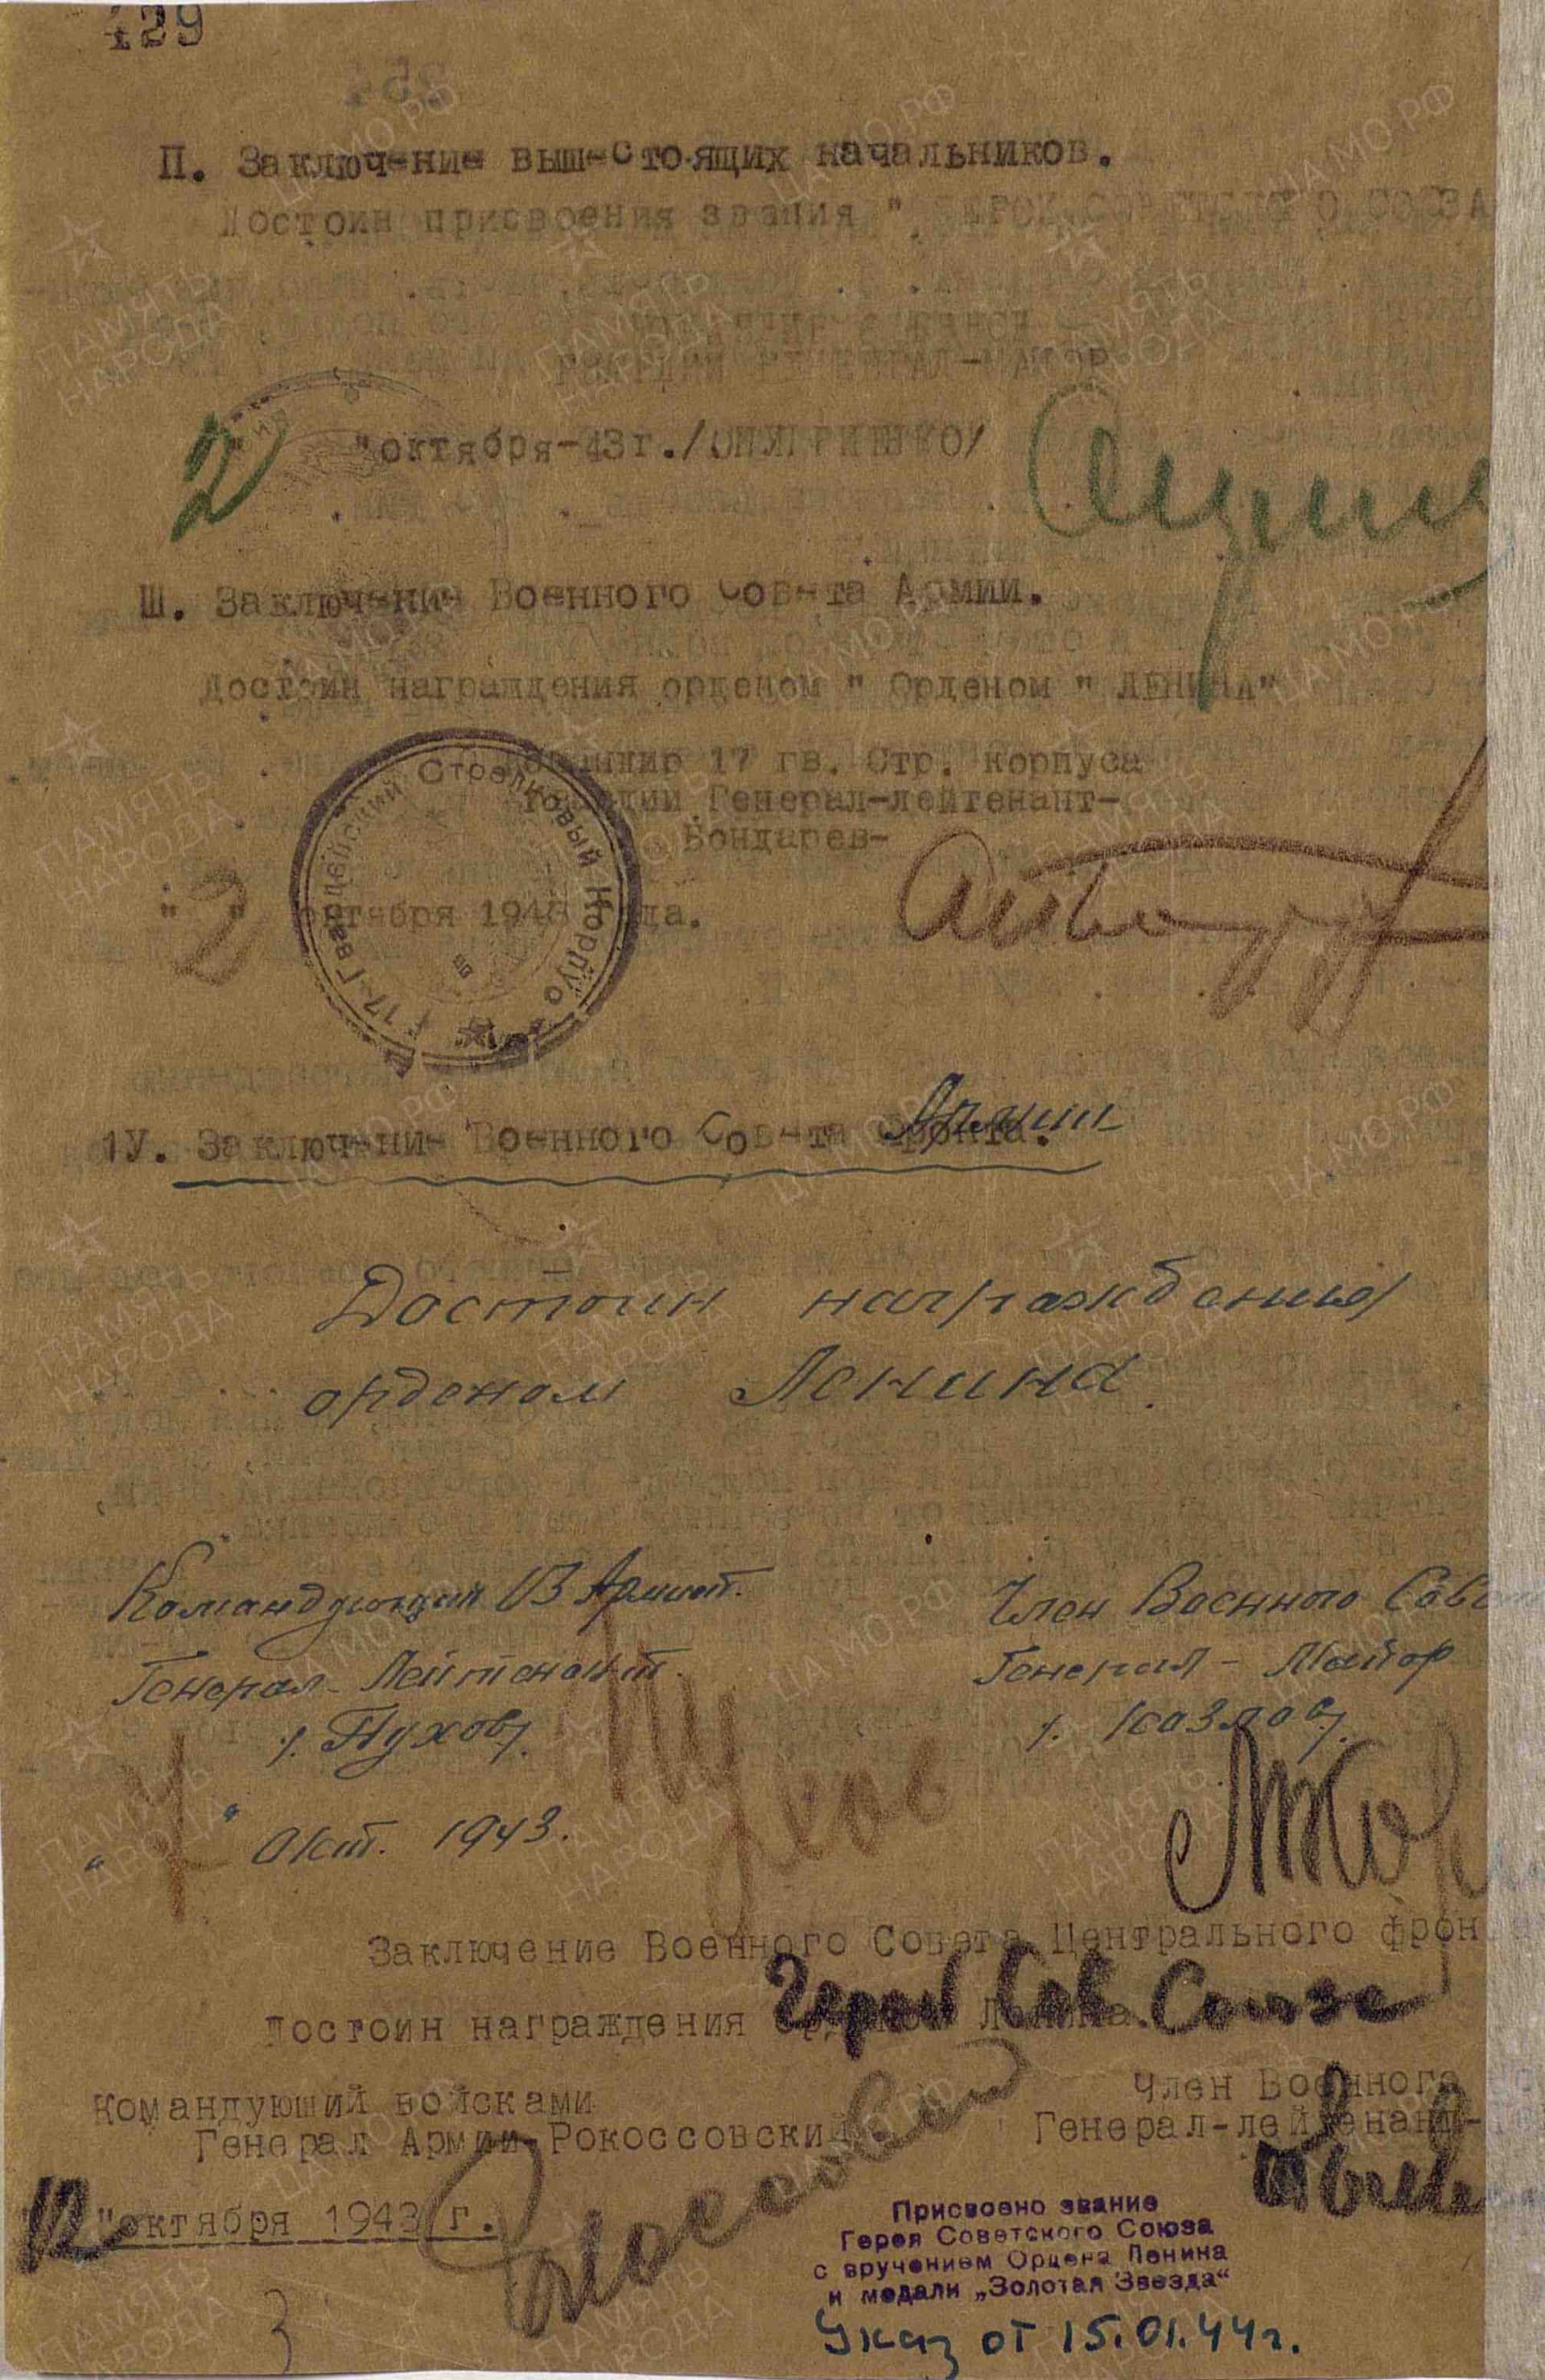 429
П. Заключение вышестоящих начальников.
Достоин присвоения звания "
ГВАРДИИ ГЕНЕРАЛ-МАЙОР
2 "октября-43г./ОНУПРИЕНКО/
Ш. Заключение Военного Совета Армии.
Достоин награждения орденом " Орденом " ЛЕНИНА"
Командир 17 гв. Стр. корпуса
Гвардии Генерал-лейтенант-
Бондарев-
"2" октября 1943 года.
17 Гвардейский Стрелковый Корпус
1У. Заключение Военного Совета фронта. Армии
Достоин награждения
орденом Ленина.
Командующий 13 Армией.
Генерал-Лейтенант.
/. Пухов/.
Член Военного Сове
Генерал-Майор
/. Козлов/.
" " Окт. 1943.
Заключение Военного Совета Центрального фрон
Герой Сов Союза
Достоин награждения орденом Ленина.
Командующий войсками
Генерал Армии-Рокоссовский
Член Военного
Генерал-лейтенант-
12 "октября 1943 г.
Присвоено звание
Героя Советского Союза
с вручением Ордена Ленина
и медали „Золотая Звезда“
Указ от 15.01.44г.
3